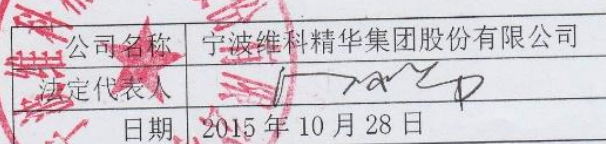 公司名称 宁波维科精华集团股份有限公司
法定代表人
日期 2015 年 10 月 28 日